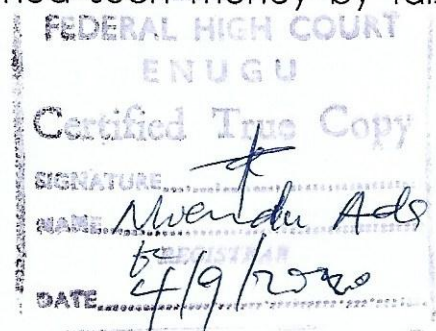 such money by
FEDERAL HIGH COURT
ENUGU
Certified True Copy
SIGNATURE
NAME Nwendu Ada
REGISTRAR
DATE 4/9/2020